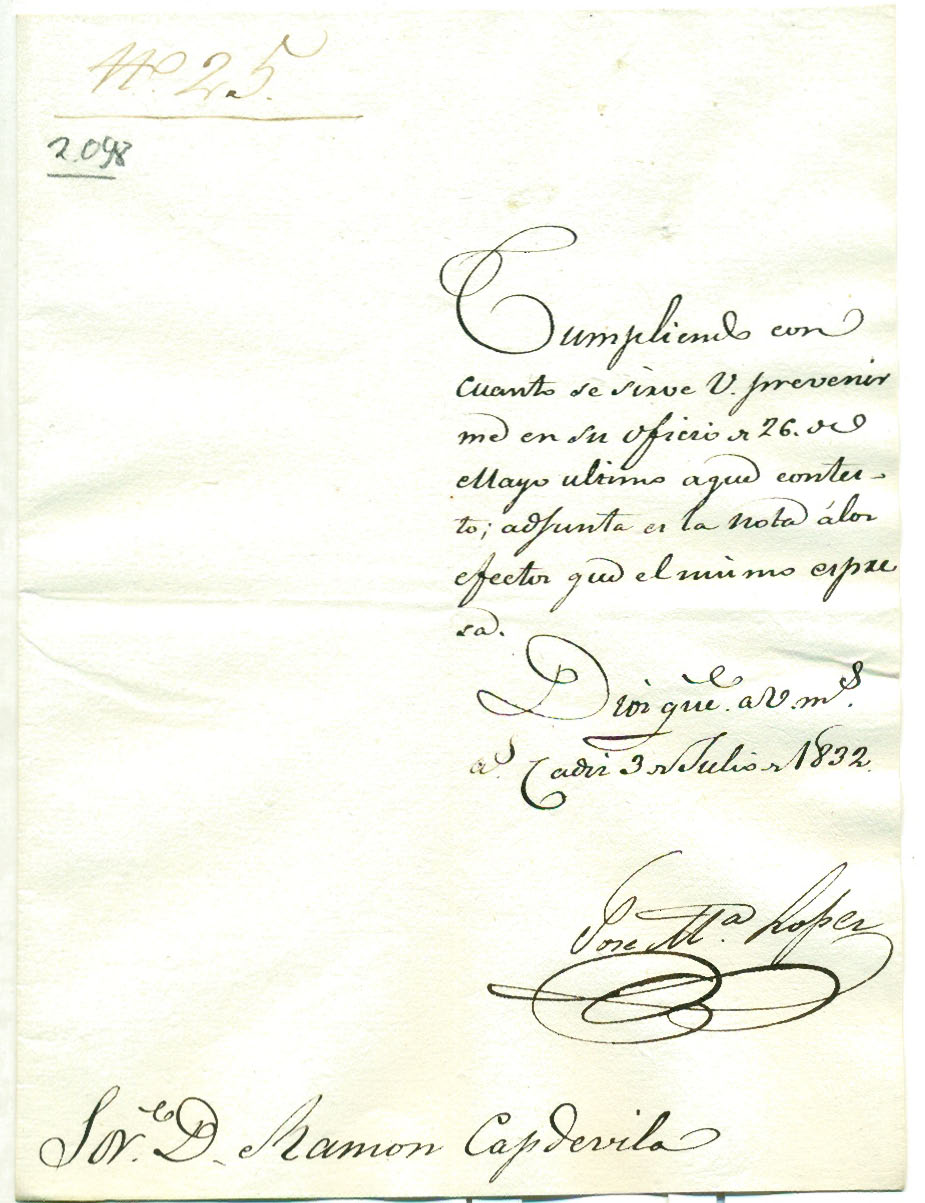 Nº 25.
2.098
Cumpliendo con
cuanto se sirve V. prevenir
me en su oficio de 26. de
Mayo ultimo aque contes-
to; adjunta es la nota álos
efectos que el mismo espre
sa.
Dios gue. a V. ms.
as. Cadiz 3 de Julio de 1832.
Jose Mª Lopez
Sor. D. Ramon Capdevila